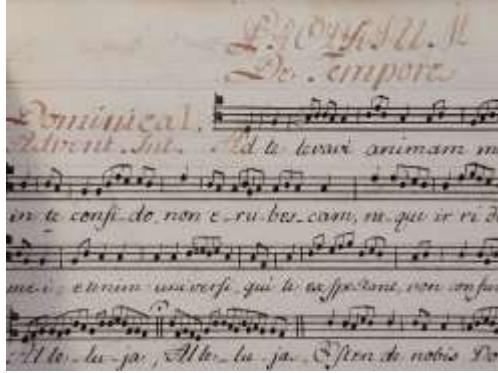 PROPRIUM
De Tempore
Dominica I.
Advent. Int. Ad te levavi animam m
in te confi-do, non e-ru-bes-cam, ne-que ir ri
me-i: etenim universi, qui te exspectant, non confun
Al le-lu-ja, Al le-lu-ja. Osten de nobis Do